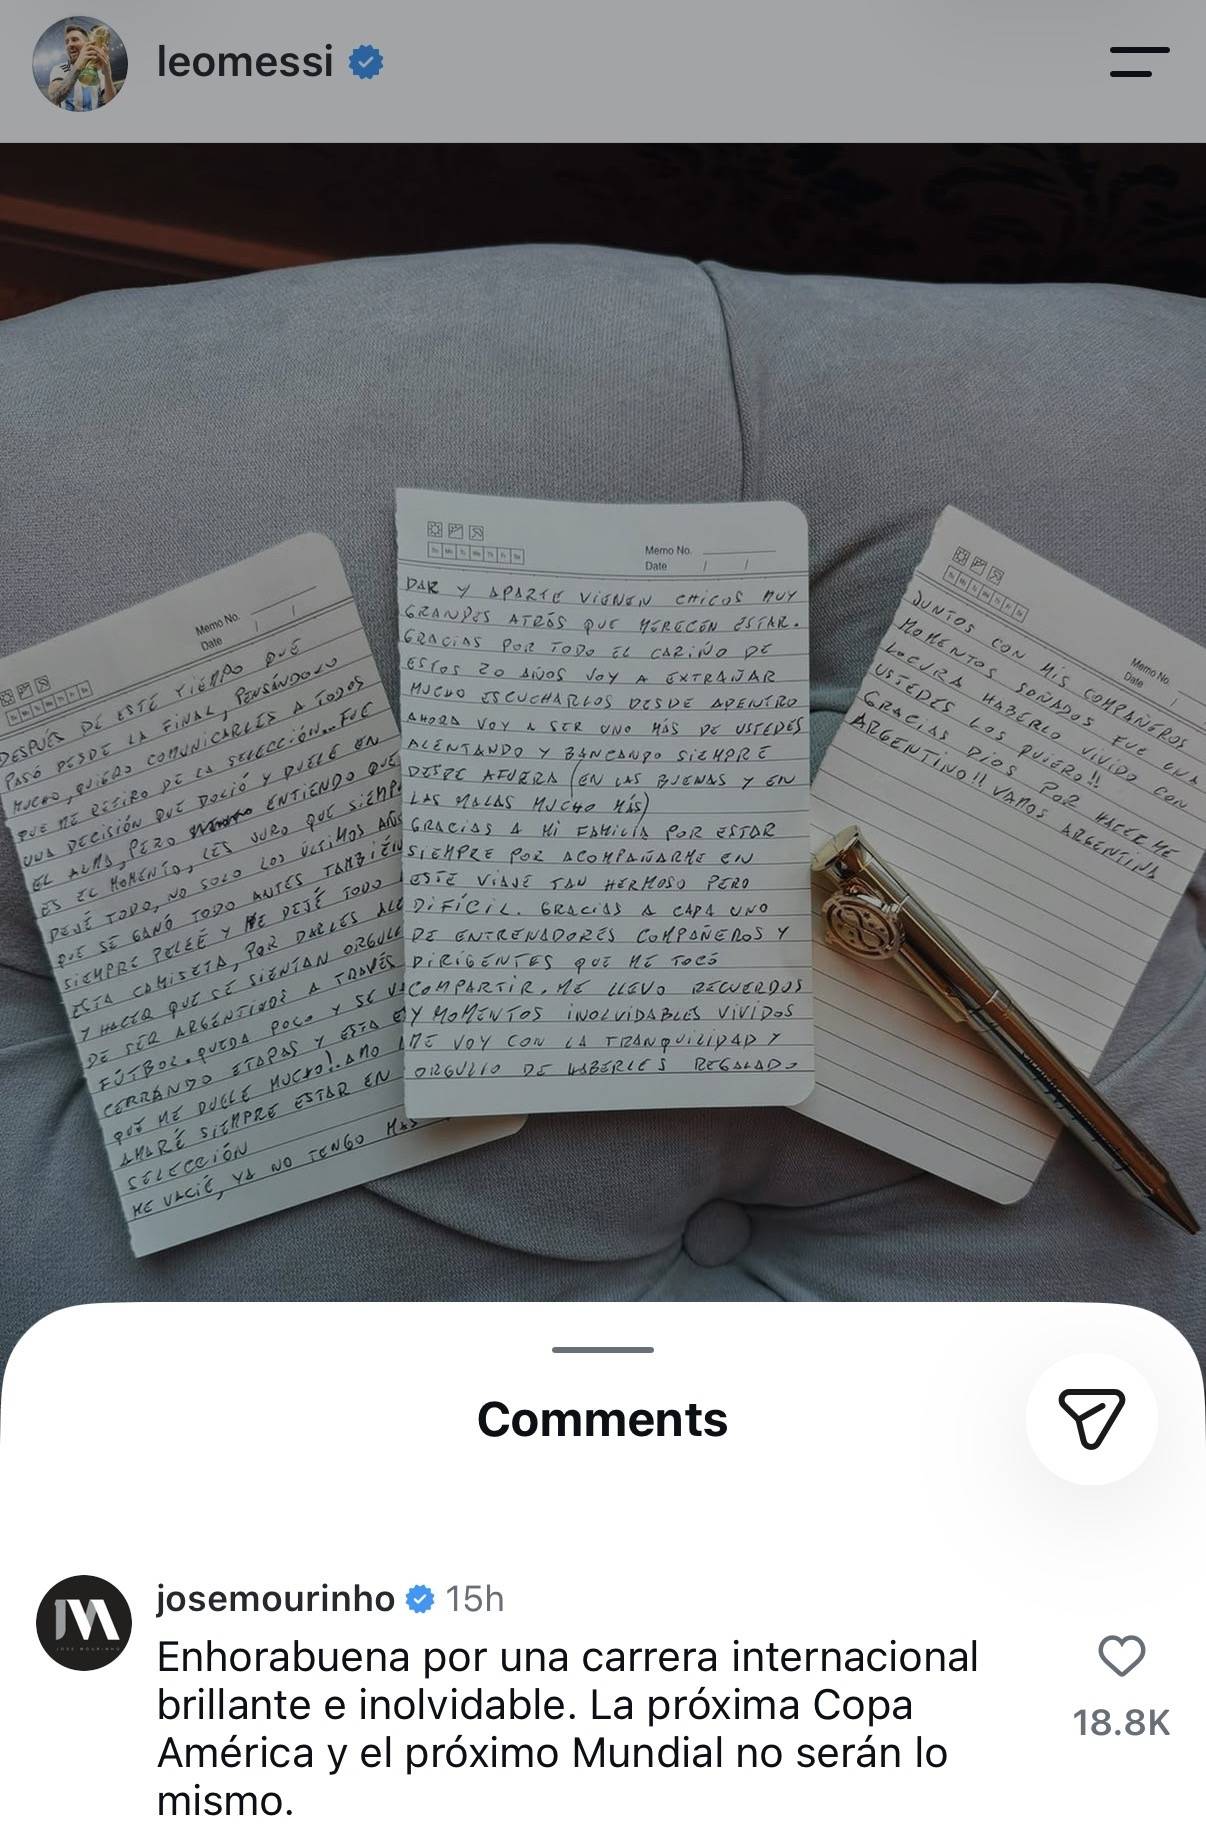 leomessi
Memo No.
Date / /
DESPUÉS DE ESTE TIEMPO QUE
PASÓ DESDE LA FINAL, PENSÁNDOLO
MUCHO, QUIERO COMUNICARLES A TODOS
QUE ME RETIRO DE LA SELECCIÓN... FUE
UNA DECISIÓN QUE DOLIÓ Y DUELE EN
EL ALMA, PERO ENTIENDO QUE
ES EL MOMENTO, LES JURO QUE SIEMP
DEJÉ TODO, NO SOLO LOS ÚLTIMOS AÑOS
QUE SE GANÓ TODO ANTES TAMBIÉN
SIEMPRE PELEÉ Y ME DEJÉ TODO
ESTA CAMISETA, POR DARLES ALE
Y HACER QUE SE SIENTAN ORGULL
DE SER ARGENTINOS A TRAVÉS
FÚTBOL. QUEDA POCO Y SE VA
CERRANDO ETAPAS Y ESTA E
QUE ME DUELE MUCHO!. AMO
AMARÉ SIEMPRE ESTAR EN
SELECCIÓN
ME VACIÉ, YA NO TENGO MÁS
Memo No.
Date / /
DAR Y APARTE VIENEN CHICOS MUY
GRANDES ATRÁS QUE MERECEN ESTAR.
GRACIAS POR TODO EL CARIÑO DE
ESTOS 20 AÑOS VOY A EXTRAÑAR
MUCHO ESCUCHARLOS DESDE ADENTRO
AHORA VOY A SER UNO MÁS DE USTEDES
ALENTANDO Y BANCANDO SIEMPRE
DESDE AFUERA (EN LAS BUENAS Y EN
LAS MALAS MUCHO MÁS)
GRACIAS A MI FAMILIA POR ESTAR
SIEMPRE POR ACOMPAÑARME EN
ESTE VIAJE TAN HERMOSO PERO
DIFÍCIL. GRACIAS A CADA UNO
DE ENTRENADORES COMPAÑEROS Y
DIRIGENTES QUE ME TOCÓ
COMPARTIR. ME LLEVO RECUERDOS
Y MOMENTOS INOLVIDABLES VIVIDOS
ME VOY CON LA TRANQUILIDAD Y
ORGULLO DE HABERLES REGALADO
Memo No.
Date /
JUNTOS CON MIS COMPAÑEROS
MOMENTOS SOÑADOS FUE UNA
LOCURA HABERLO VIVIDO CON
USTEDES LOS QUIERO!!
GRACIAS DIOS POR HACERME
ARGENTINO!! VAMOS ARGENTINA
Comments
JM
josemourinho 15h
Enhorabuena por una carrera internacional
brillante e inolvidable. La próxima Copa
América y el próximo Mundial no serán lo
mismo.
18.8K